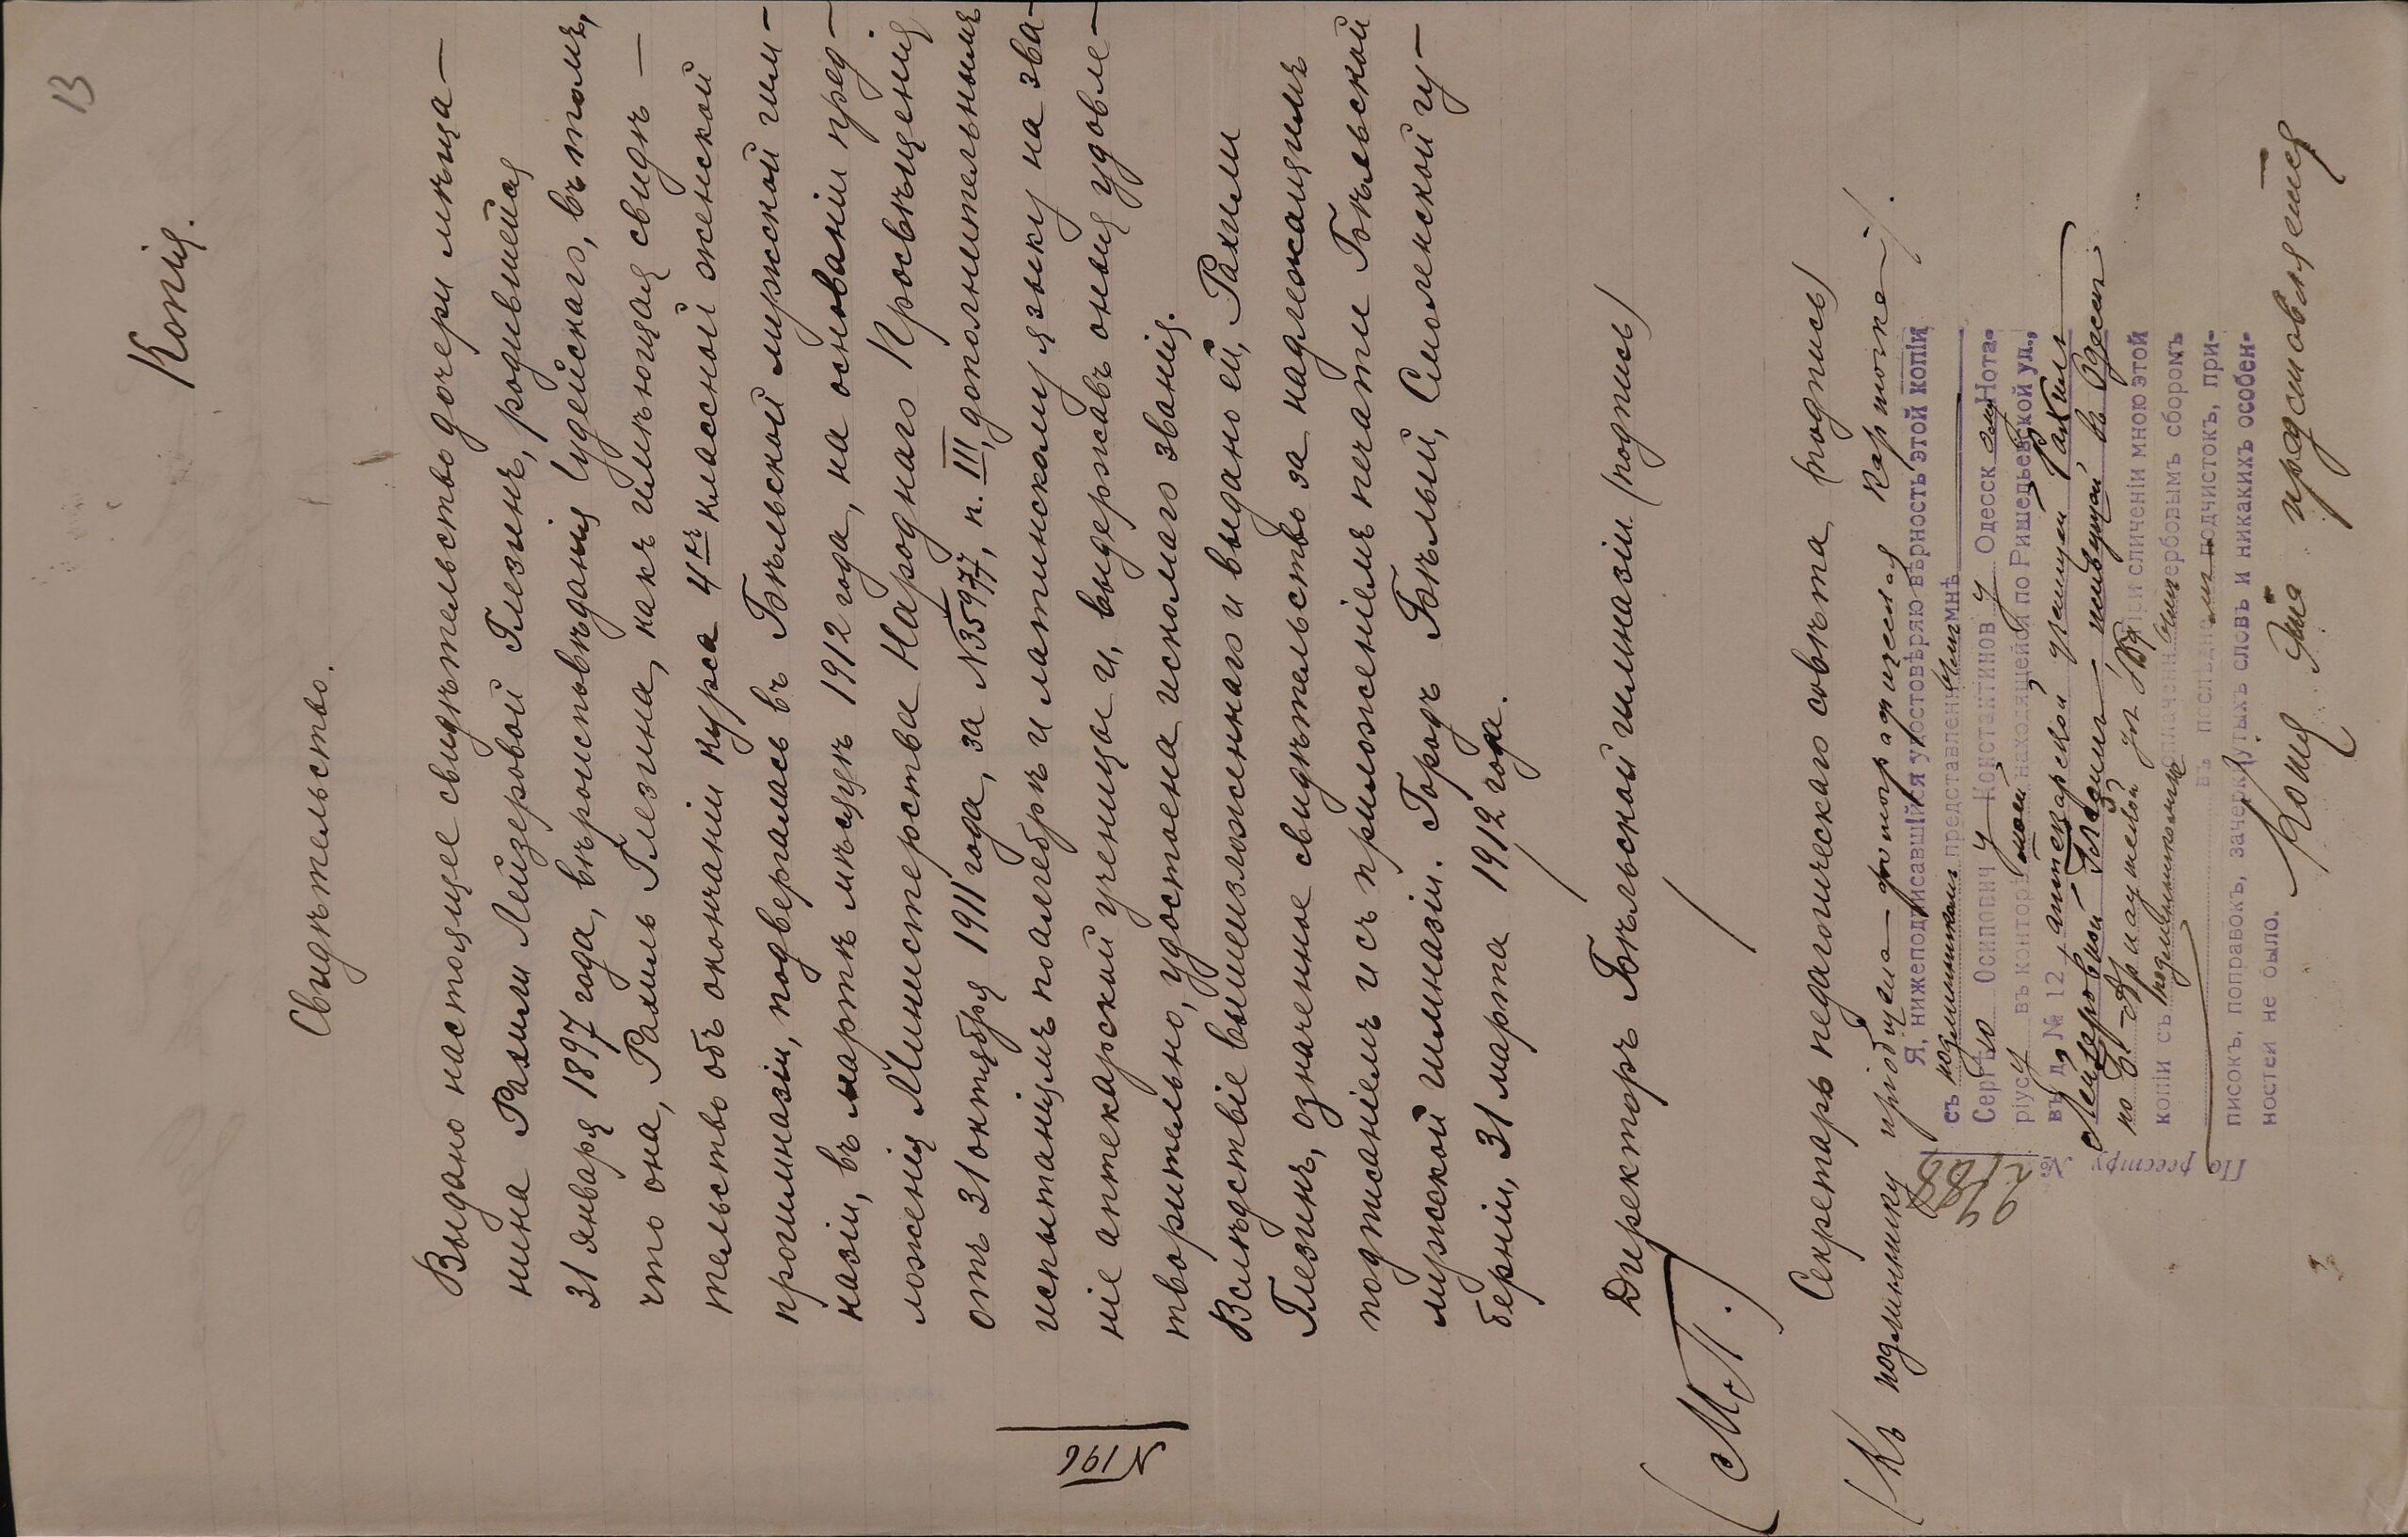 13
Копія.
Свидѣтельство.
Выдано настоящее свидѣтельство дочери мѣща-
нина Рахили Лейзеровой Глезинъ, родившейся
31 января 1897 года, вѣроисповѣданія Іудейскаго, въ томъ,
что она, Рахиль Глезина, какъ имѣющая свидѣ-
тельство объ окончаніи курса 4хъ классной женской
прогимназіи, подвергалась въ Бѣльской мужской гим-
назіи, въ мартѣ мѣсяцѣ 1912 года, на основаніи пред-
ложенія Министерства Народнаго Просвѣщенія
отъ 31 октября 1911 года, за №35977, п. III, дополнительнымъ
испытаніямъ по алгебрѣ и латинскому языку на зва-
ніе аптекарской ученицы и, выдержавъ оныя удовле-
творительно, удостоена искомаго званія.
Вслѣдствіе вышеизложеннаго и выдано ей, Рахили
Глезинъ, означенное свидѣтельство за надлежащимъ
подписаніемъ и съ приложеніемъ печати Бѣльской
мужской гимназіи. Городъ Бѣлый, Смоленской гу-
берніи, 31 марта 1912 года.
№ 196
Директоръ Бѣльской гимназіи (подпись)
(М.П.)
Секретарь педагогическаго совѣта (подпись)
(Къ подлиннику фотографическая карточка).
Я, нижеподписавшійся удостовѣряю вѣрность этой копіи
съ подлинникомъ представленнымъ мнѣ
Сергѣю Осиповичу Константинову Одесскому Нота-
ріусу въ конторѣ моей находящейся по Ришельевской ул.,
въ д. № 12, аптекарской ученицей Рахилью
Лейзеровной Глезинъ живущей въ Одессѣ
по ул. При сличеніи мною этой
копіи съ подлинникомъ оплаченнымъ гербовымъ сборомъ
въ послѣднемъ подчистокъ, при-
писокъ, поправокъ, зачеркнутыхъ словъ и никакихъ особен-
ностей не было.
Копія эта представляется
По реестру
№ 2188